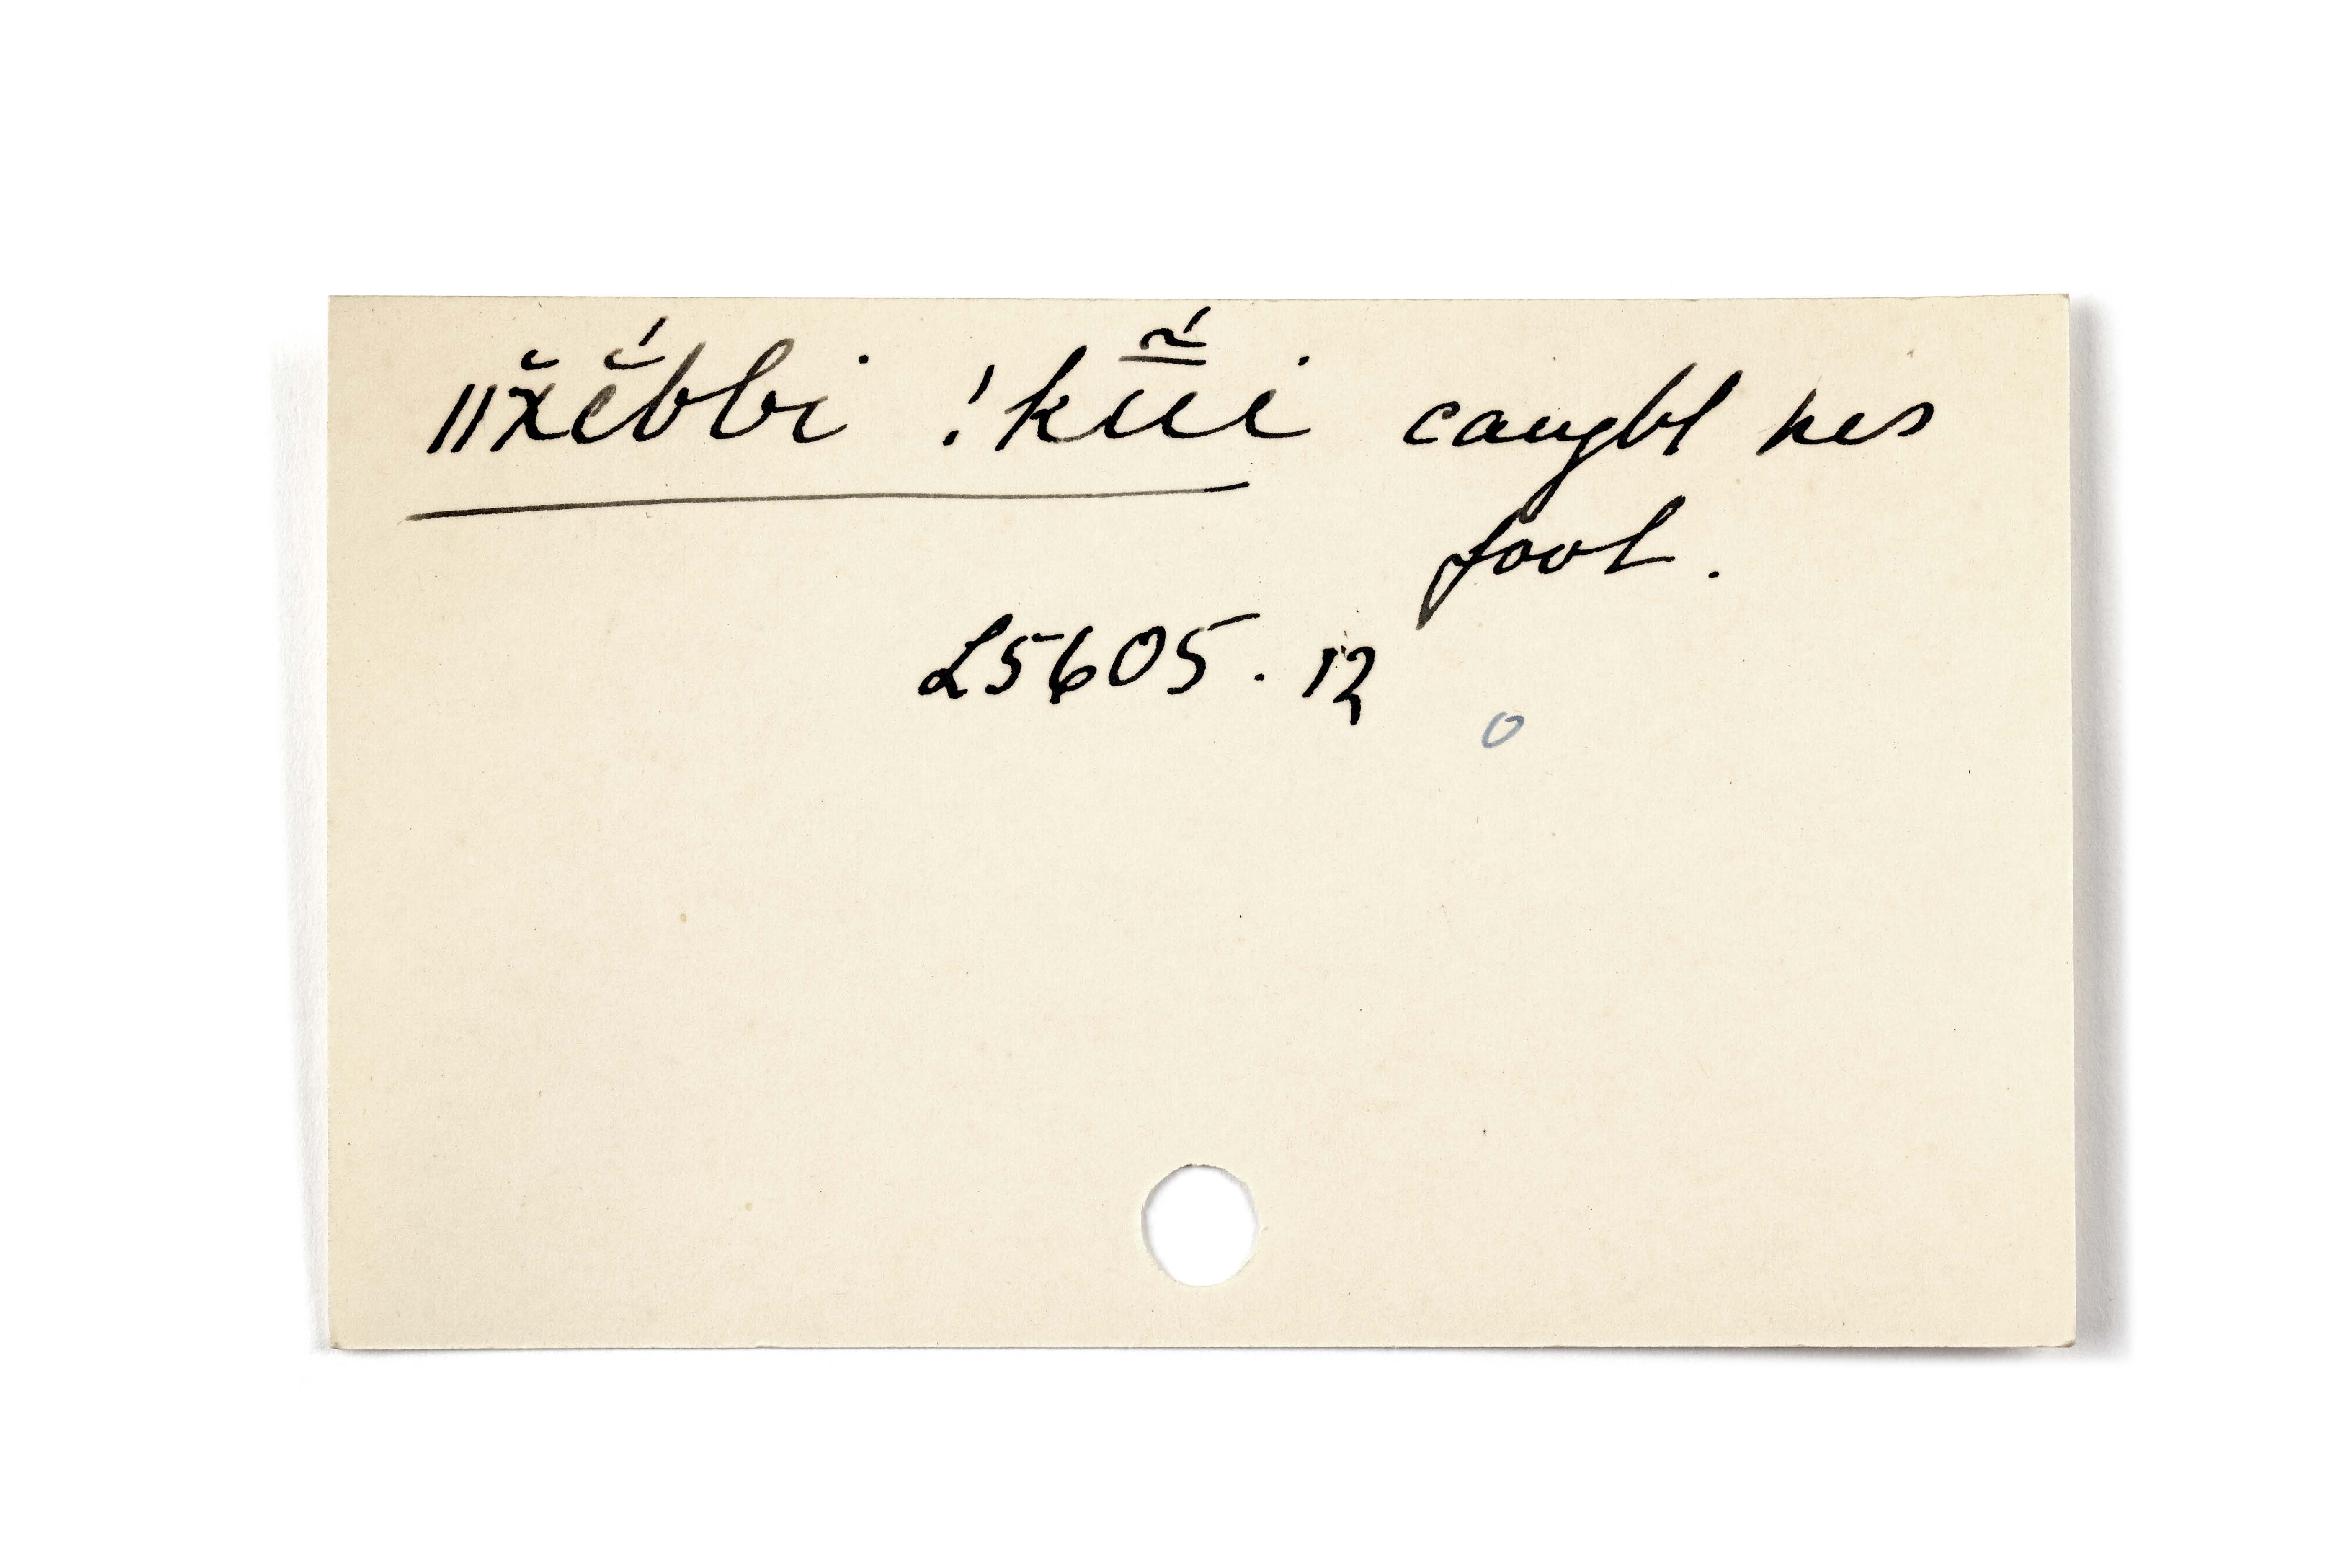 ǁx̆ĕ́bbi !kũ̄́i caught his
foot.
L5605. 12
o